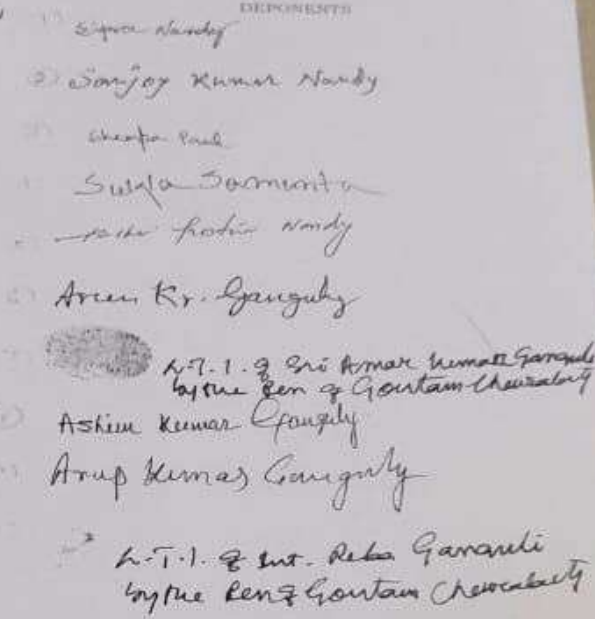 DEPONENTS
Nandy
2) Sanjoy Kumar Nandy
Champa Paul
Sukla Samanta
Nandy
Kr. Ganguly
L.T.I. of Sri Amar Kumar
by the Pen of Goutam
Ashim Kumar Ganguly
Arup Kumar Ganguly
L.T.I. of Smt. Reba Ganguli
by the Pen of Goutam